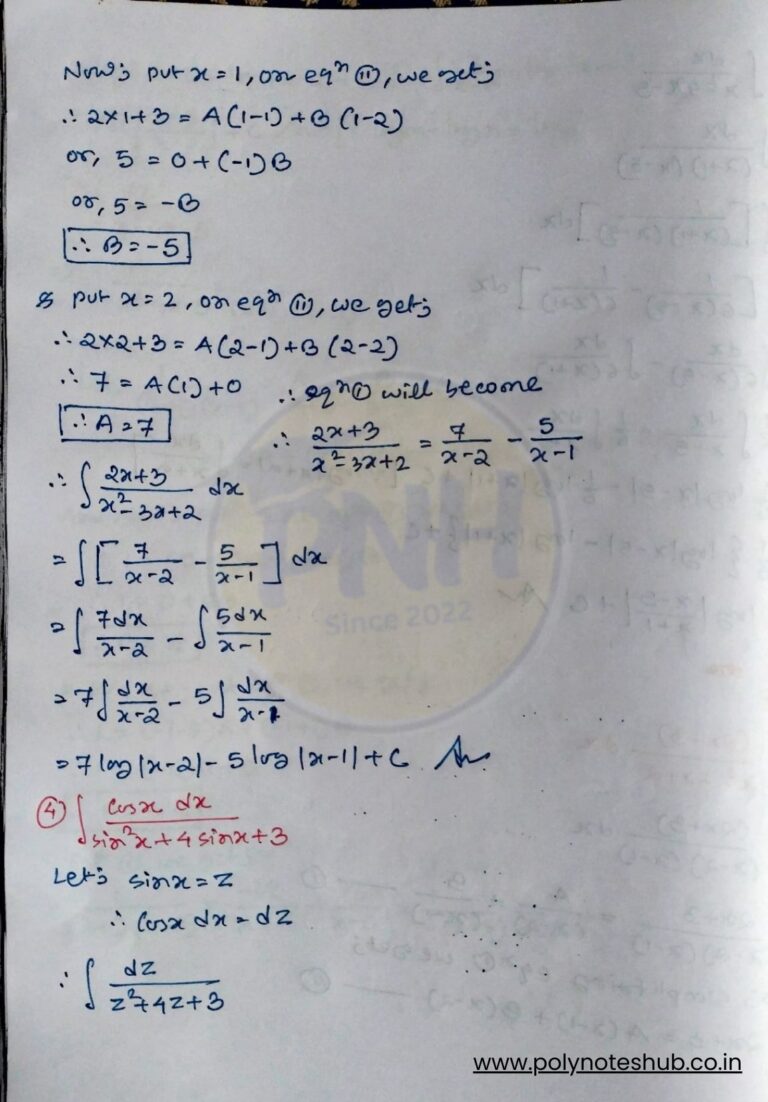 Now; put x = 1, on eqⁿ ⑪, we get;
∴ 2×1+3 = A(1-1)+B(1-2)
or, 5 = 0+(-1)B
or, 5 = -B
∴ B = -5
& put x = 2, on eqⁿ ⑪, we get;
∴ 2×2+3 = A(2-1)+B(2-2)
∴ 7 = A(1)+0 ∴ eqⁿ① will become
∴ A = 7 ∴ (2x+3)/(x²-3x+2) = 7/(x-2) - 5/(x-1)
∴ ∫ (2x+3)/(x²-3x+2) dx
= ∫[7/(x-2) - 5/(x-1)] dx
= ∫ 7dx/(x-2) - ∫ 5dx/(x-1)
= 7∫ dx/(x-2) - 5∫ dx/(x-1)
= 7 log|x-2| - 5 log|x-1| + C Ans
④ ∫ cosx dx/(sin²x+4sinx+3)
Let; sinx = z
∴ cosx dx = dz
∴ ∫ dz/(z²+4z+3)
PNH
Since 2022
www.polynoteshub.co.in